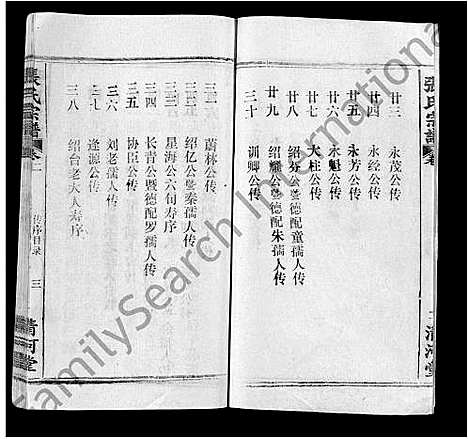 張氏宗譜
廿三 永茂公传
廿四 永经公传
廿五 永芳公传
廿六 永魁公传
廿七 大柱公传
廿八 绍芬公暨德配童孺人传
廿九 绍耀公暨德配朱孺人传
三十 训卿公传
清河堂
三一 蔚林公传
三二 绍亿公暨秦孺人传
三三 星海公六旬寿序
三四 长青公暨德配罗孺人传
三五 协臣公传
三六 刘老孺人传
三七 逢源公传
三八 绍台老大人寿序
張氏宗譜
卷一
传序目录
三
清河堂
FamilySearch International